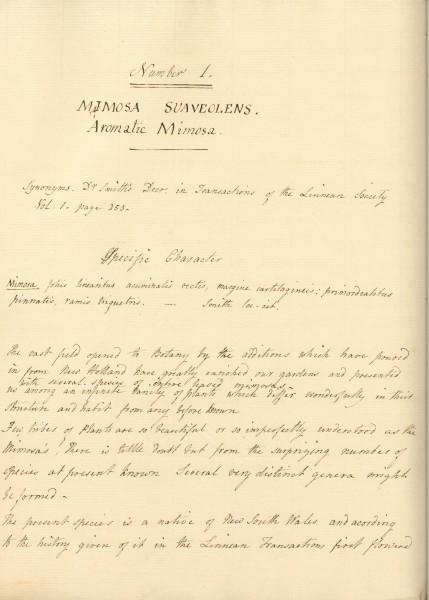 Number 1.
MIMOSA SUAVEOLENS.
Aromatic Mimosa.
Synonyms. Dr Smith's Descr. in Transactions of the Linnean Society
Vol. 1. page 253.
Specific Character
Mimosa, foliis linearibus acuminatis rectis, margine cartilagineis: primordialibus
pinnatis, ramis triquetris. — Smith loc. cit.
The vast field opened to Botany by the additions which have poured
in from New Holland have greatly enriched our gardens and presented
with several species of entire leaved mimosas
us among an infinite variety of plants which differ wonderfully in their
structure and habit from any before known
Few tribes of Plants are so beautiful or so imperfectly understood as the
Mimosa's, There is little doubt but from the surprizing number of
species at present known Several very distinct genera might
be formed -
The present species is a native of New South Wales and acording
to the history given of it in the Linnean Transactions first flowerd